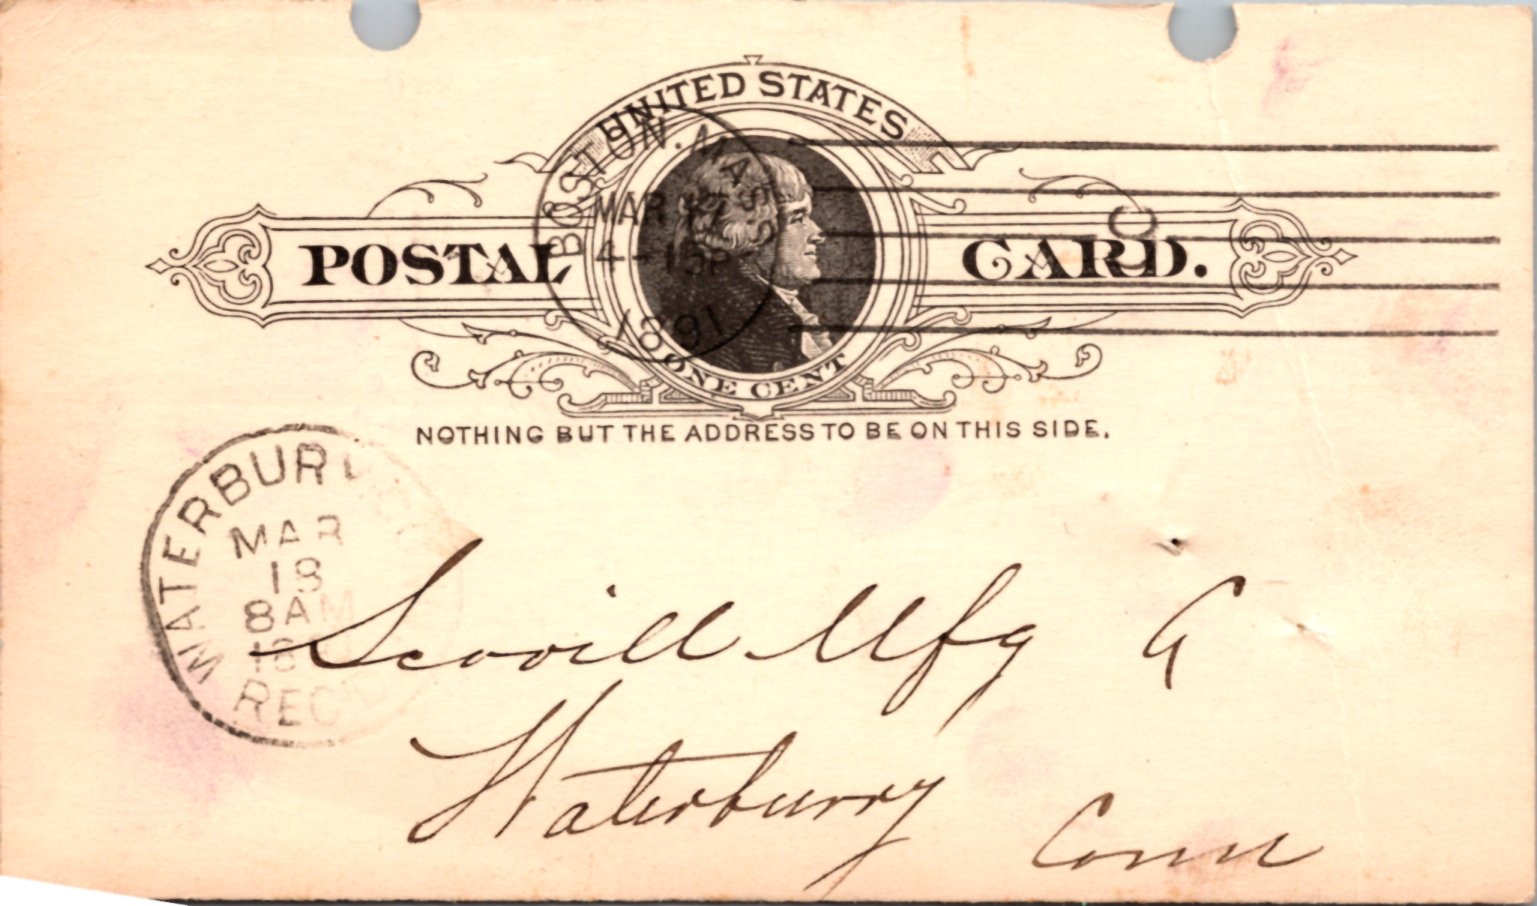 UNITED STATES
BOSTON. MASS
MAR
4-15P
1891
POSTAL CARD.
C
ONE CENT
NOTHING BUT THE ADDRESS TO BE ON THIS SIDE.
WATERBURY
MAR
18
8AM
18
REC'D
Scovill Mfg Co
Waterburry
Conn